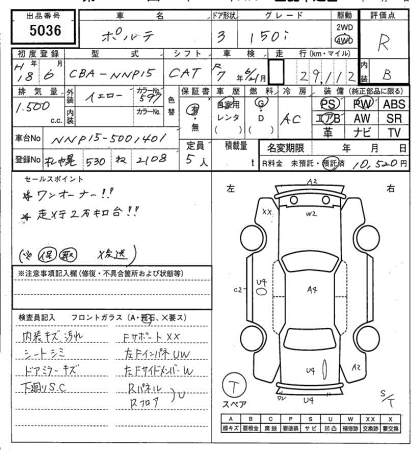 出品番号 車名 ドア形状 グレード 駆動 評価点
5036 ポルテ 3 150i 2WD 4WD R
初度登録 型式 シフト 車検 走行(km・マイル) 内装
H18年6月 CBA-NNP15 CAT R7年6月 29,112 B
排気量 外装 イエロー カラーNo 599 色替 保証書 車歴 燃料 冷房 装備(純正部品に限る)
1.500 c.c. 内装 カラーNo 有・無 自家用 レンタ G D AC PS PW ABS
エアB AW SR
革 ナビ TV
車台No NNP15-5001401 定員 積載量 名変期限 年 月 日
登録No 札幌 530 ね 2108 5人 t R料金 未預託・預託済 10,520円
セールスポイント
*ワンオーナー!!
*走メテ2万キロ台!!
(※保取 X発送)
※注意事項記入欄(修復・不具合箇所および状態等)
検査員記入 フロントガラス(A・飛石、X要ス)
内装キズ汚れ Fサポート XX
シートシミ 左FインパネUW
ドアミラーキズ 左FサイドメンバーW
下廻りS.C Rパネル
Rフロア U
左 右
A2
XX W2
C2 U4 A4
U4
A2
U4
T
スペア
S/T
A B C P S U W X XX
線キズ 要板金 腐食 要塗装 サビ 凹凸 補修跡 交換跡 要交換